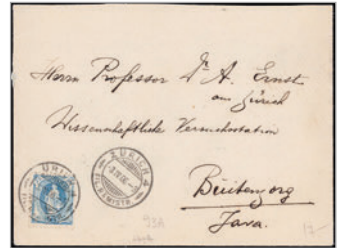 Herrn Professor Dr A. Ernst
aus Zürich
Wissenschaftliche Versuchsstation
Buitenzorg
Java.
ZÜRICH 4